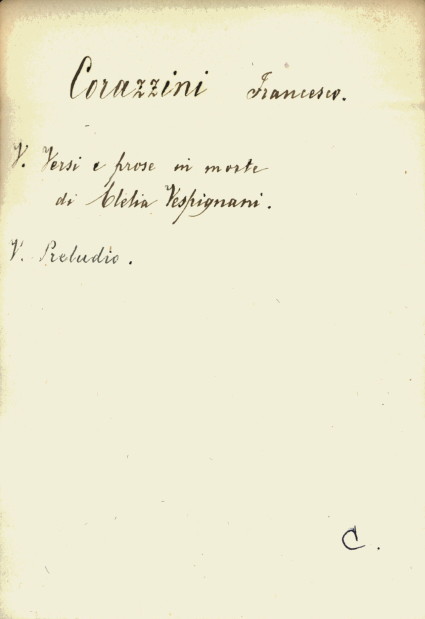 Corazzini Francesco.
V. Versi e prose in morte
di Clelia Vespignani.
V. Preludio.
C.